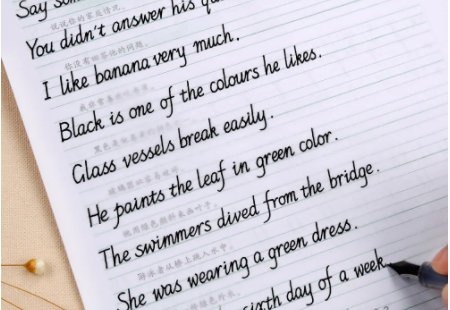 Say
说说你的家庭情况。
You didn't answer his
你没有回答他的问题。
I like banana very much.
我非常喜欢
Black is one of the colours he likes.
黑色是他喜欢的
Glass vessels break easily.
玻璃器皿容易破碎。
He paints the leaf in green color.
他用绿色颜料来画叶子。
The swimmers dived from the bridge.
游泳者从桥上跳入水中。
She was wearing a green dress.
day of a week